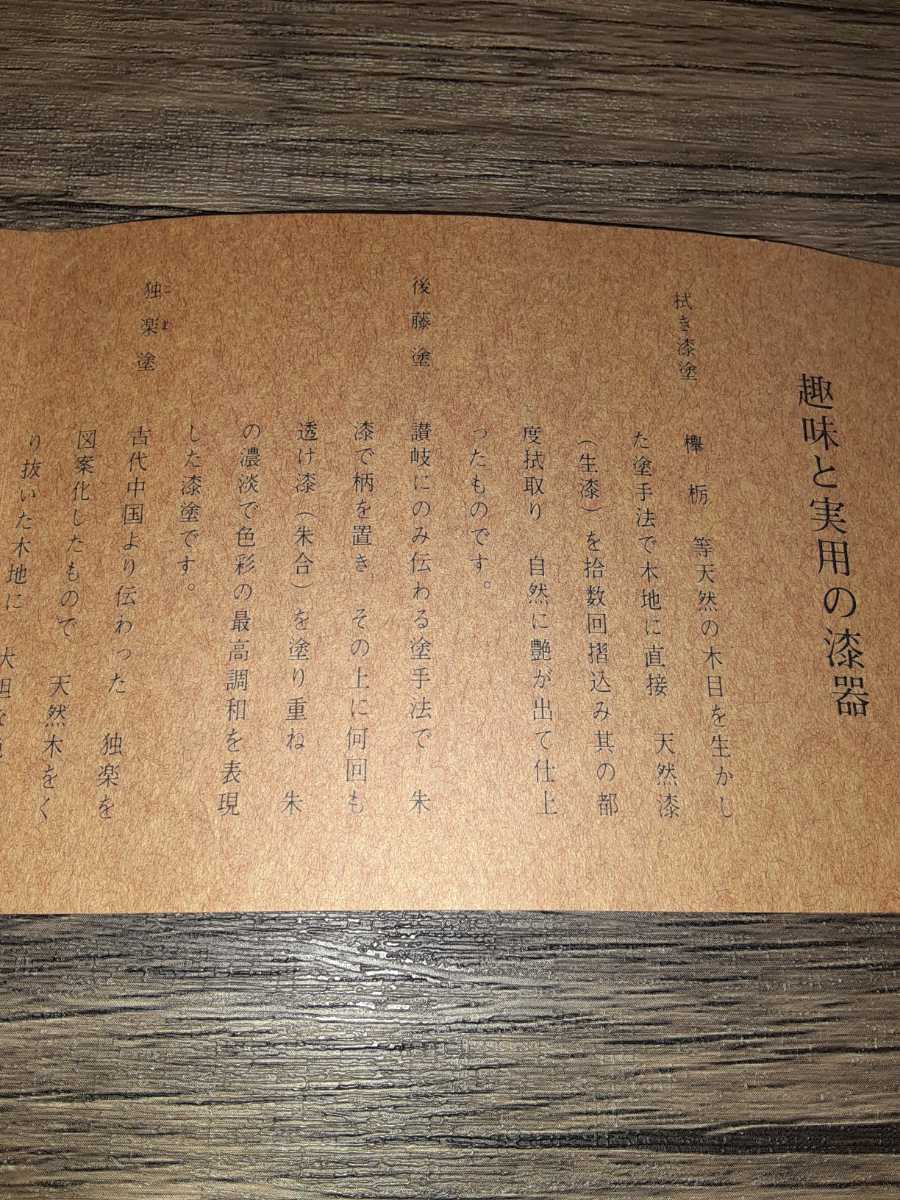 趣味と実用の漆器
拭き漆塗
欅 栃 等天然の木目を生かし
た塗手法で木地に直接 天然漆
（生漆）を拾数回摺込み其の都
度拭取り 自然に艶が出て仕上
ったものです。
後藤塗
讃岐にのみ伝わる塗手法で 朱
漆で柄を置き その上に何回も
透け漆（朱合）を塗り重ね 朱
の濃淡で色彩の最高調和を表現
した漆塗です。
独楽塗
こま
古代中国より伝わった 独楽を
図案化したもので 天然木をく
り抜いた木地に 大胆な